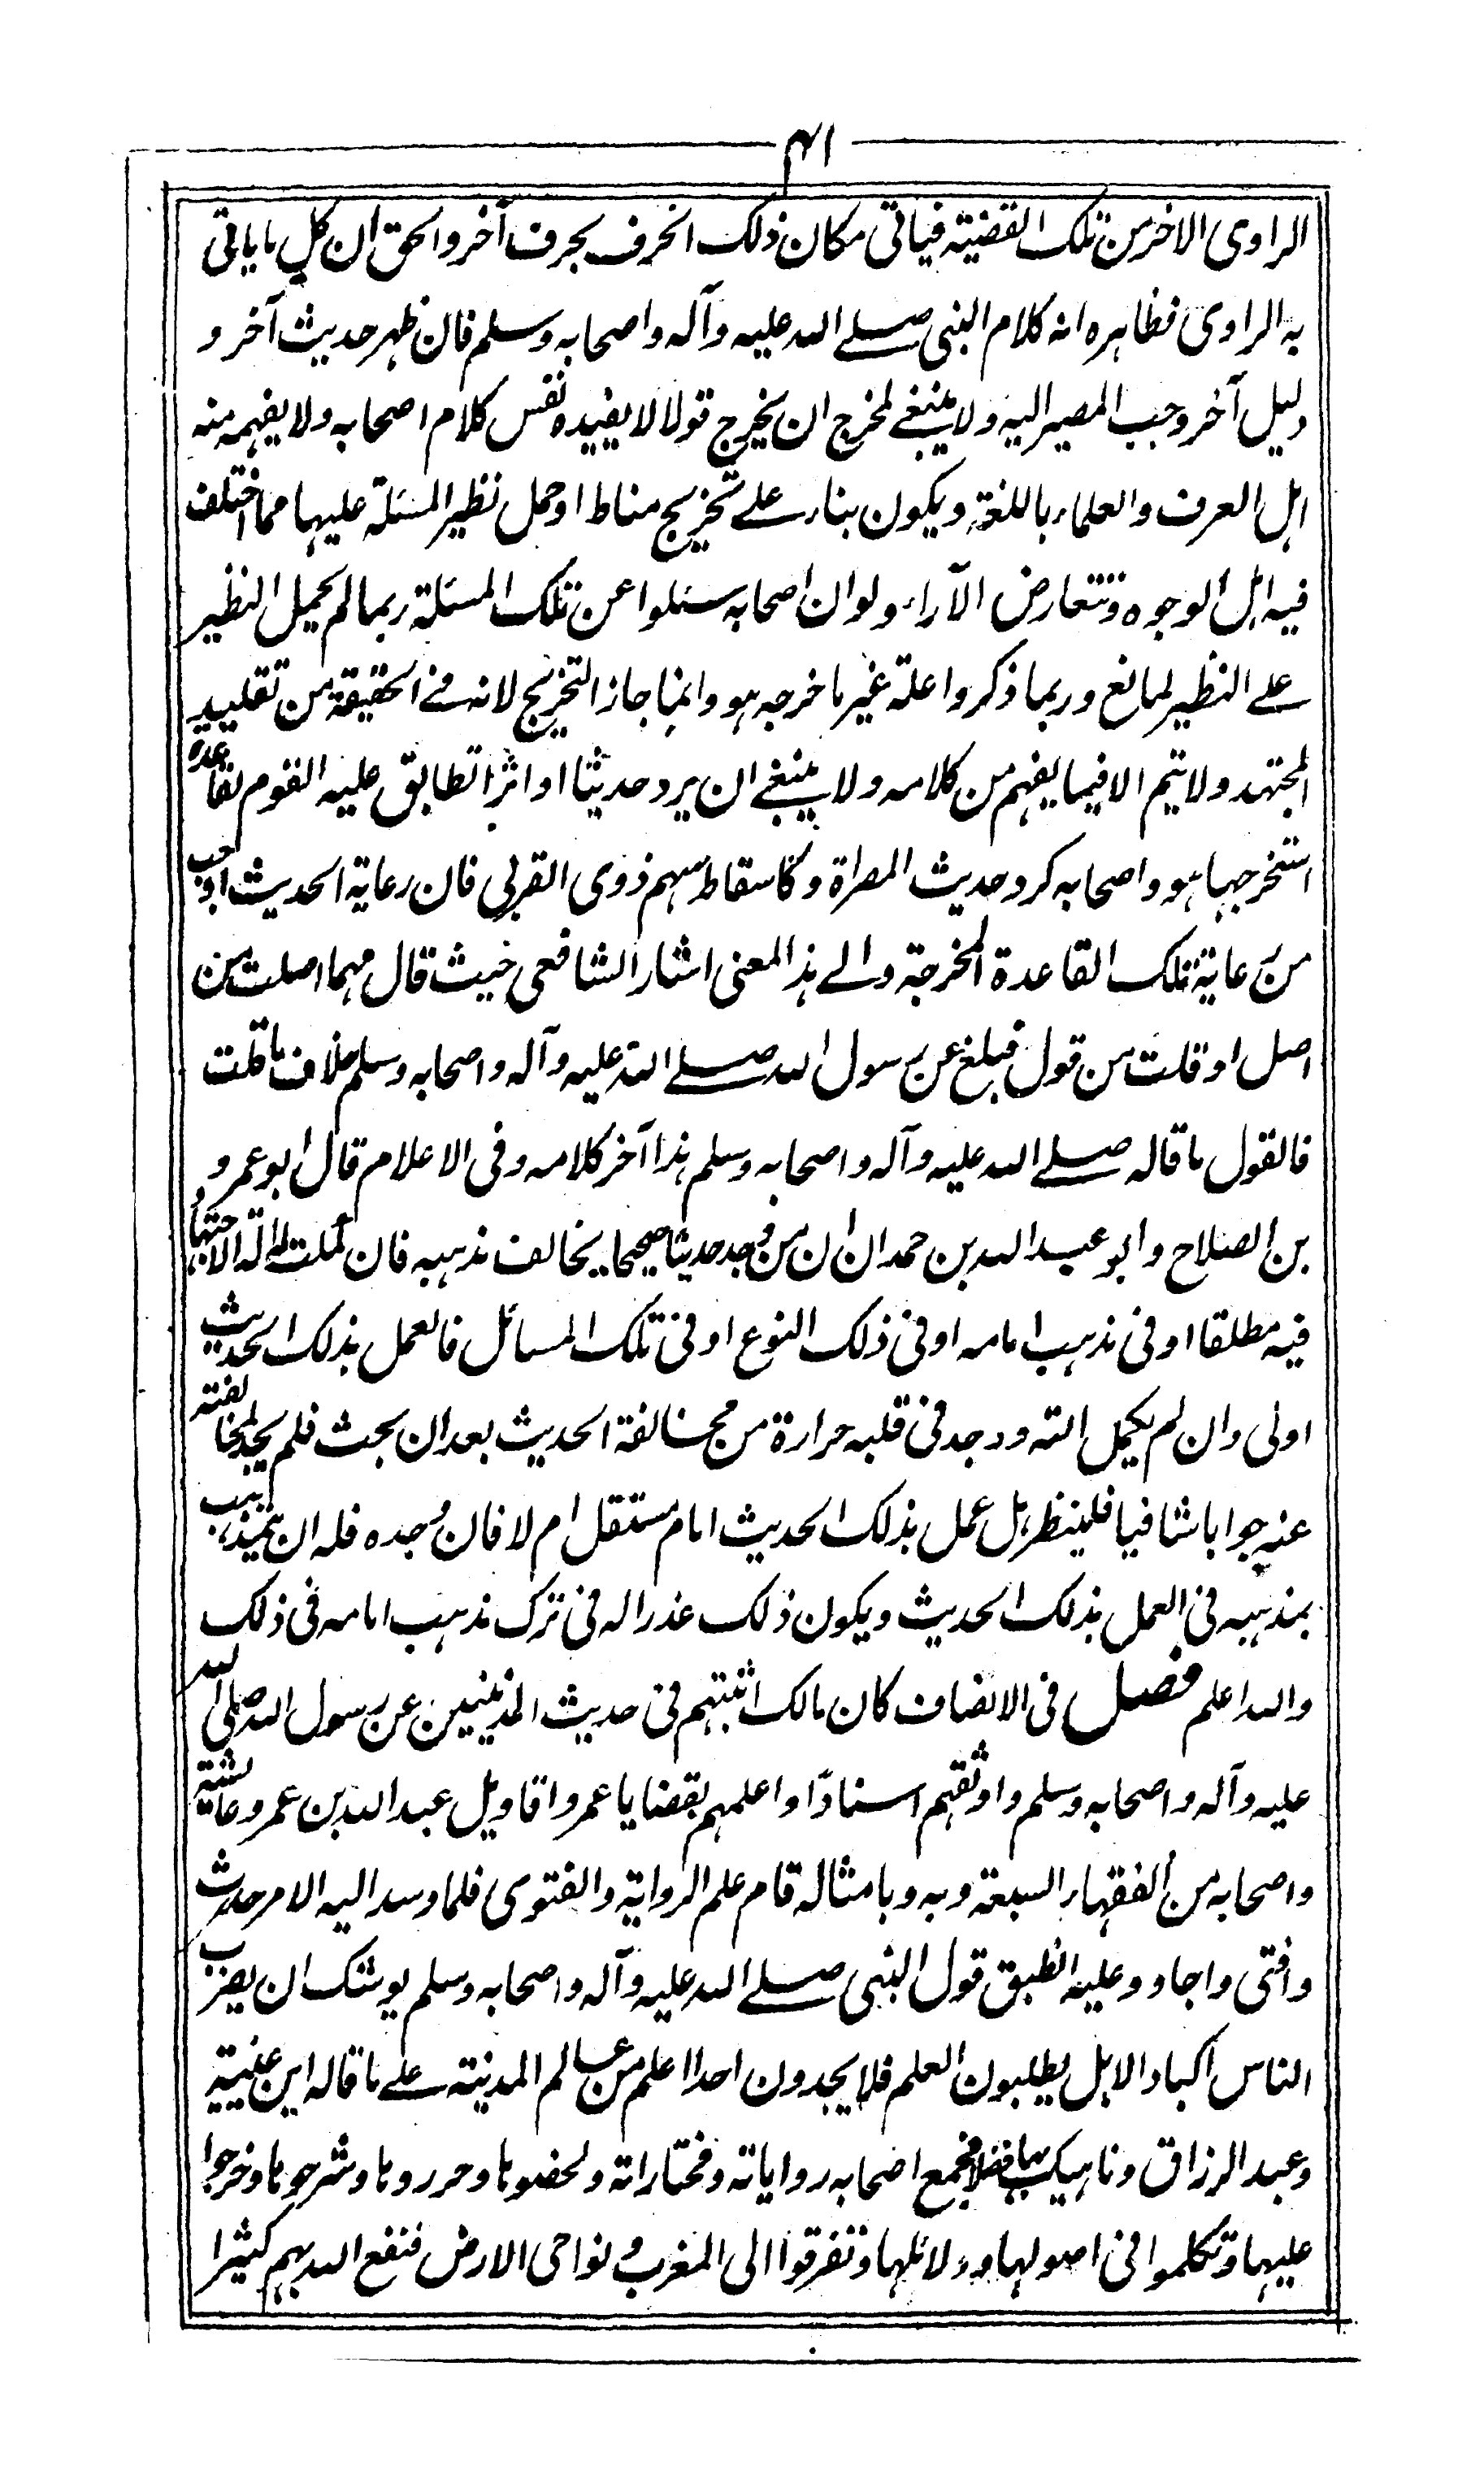 ۴۱
الراوى الاخر من تلك القضية فياتى مكان ذلك الحرف بحرف آخر والحق ان كل ما ياتى
به الراوى فظاهره انه كلام النبى صلے الله عليه وآله واصحابه وسلم فان ظهر حديث آخر و
دليل آخر وجب المصير اليه ولا ينبغے لمخرج ان يخرج قولا لا يفيده نفس كلام اصحابه ولا يفهمه منه
اہل العرف والعلماء باللغة ويكون بناء علے تخريج مناط او حمل نظير المسئلة عليها مما اختلف
فيه اہل الوجوه وتتعارض الآراء ولو ان اصحابه سئلوا عن تلك المسئلة ربما لم يحمل النظير
علے النظير لمانع وربما ذكروا علة غير ما خرجه ہو وانما جاز التخريج لانه فے الحقيقة من تقليد
المجتهد ولا يتم الا فيما يفهم من كلامه ولا ينبغے ان يرد حديثا او اثرا تطابق عليه القوم لقاعدة
استخرجها ہو واصحابه كرد حديث المصراة وكاسقاط سهم ذوى القربى فان رعاية الحديث اوجب
من رعاية تلك القاعدة المخرجة والے ہذ المعنى اشار الشافعى حيث قال مهما اصلت من
اصل او قلت من قول فبلغ عن رسول الله صلے الله عليه وآله واصحابه وسلم خلاف ما قلت
فالقول ما قاله صلے الله عليه وآله واصحابه وسلم ہذا آخر كلامه وفى الاعلام قال ابو عمرو
بن الصلاح وابو عبد الله بن حمدان ان من وجد حديثا صحيحا يخالف مذہبه فان كملت له آلة الاجتهاد
فيه مطلقا او فى مذہب امامه او فى ذلك النوع او فى تلك المسائل فالعمل بذلك الحديث
اولى وان لم يكمل الته ووجد فى قلبه حرارة من مخالفة الحديث بعد ان بحث فلم يجد لمخالفته
عنه جوابا شافيا فلينظر ہل عمل بذلك الحديث امام مستقل ام لا فان وجده فله ان يتمذہب
بمذہبه فى العمل بذلك الحديث ويكون ذلك عذرا له فى ترك مذہب امامه فى ذلك
والله اعلم فصل فى الانصاف كان مالك اثبتهم فى حديث المدنيين عن رسول الله صلى الله
عليه وآله واصحابه وسلم واوثقهم اسنادًا واعلمهم بقضايا عمر واقاويل عبد الله بن عمر وعائشة
واصحابه من الفقهاء السبعة وبه وبامثاله قام علم الرواية والفتوى فلما وسد اليه الامر حدث
وافتى واجاد وعليه انطبق قول النبى صلے الله عليه وآله واصحابه وسلم يوشك ان يضرب
الناس اكباد الابل يطلبون العلم فلا يجدون احدا اعلم من عالم المدينة علے ما قاله ابن عيينة
وعبد الرزاق وناہيك بهما فضلا فجمع اصحابه رواياته ومختاراته ولخصوہا وحرروہا وشرحوہا وخرجوا
عليها وتكلموا فى اصولها ودلائلها وتفرقوا الى المغرب ونواحى الارض فنفع الله بهم كثيرا